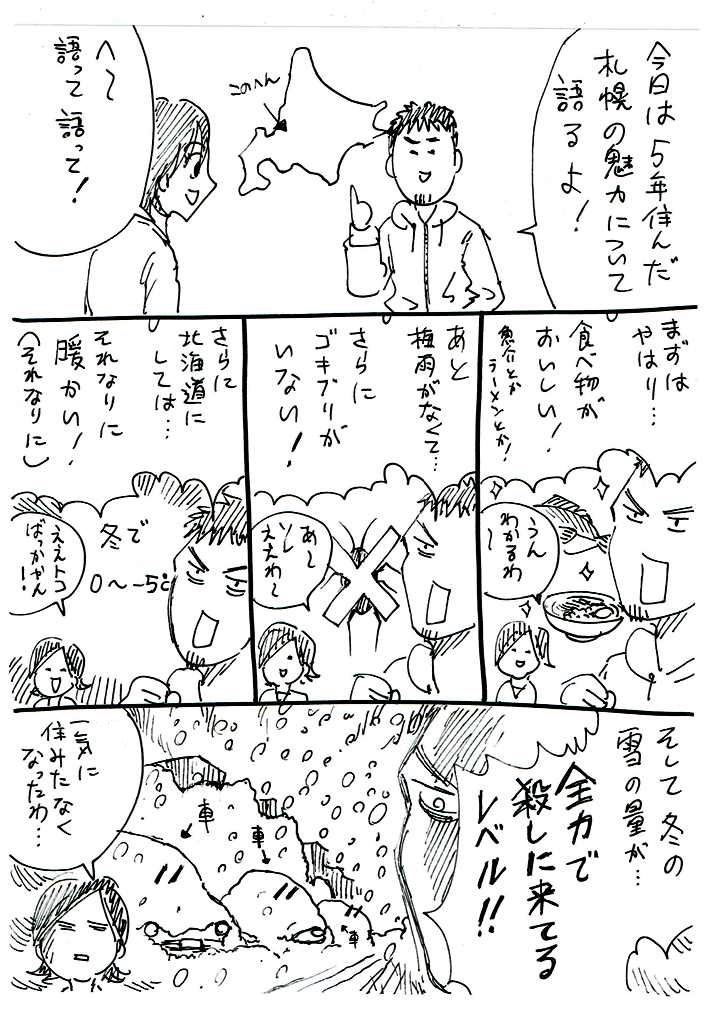 今日は5年住んだ
札幌の魅力について
語るよ！
このへん
へ～
語って語って！
まずは
やはり…
食べ物が
おいしい！
魚介とか
ラーメンとか！
うん
わかるわ
～
あと
梅雨がなくて…
さらに
ゴキブリが
いない！
あ～
ソレ
ええわ～
さらに
北海道に
しては…
それなりに
暖かい！
（それなりに）
冬で
0～-5℃
ええトコ
ばっかやん
！
そして冬の
雪の量が…
全力で
殺しに来てる
レベル!!
車
車
車
一気に
住みたなく
なったわ…